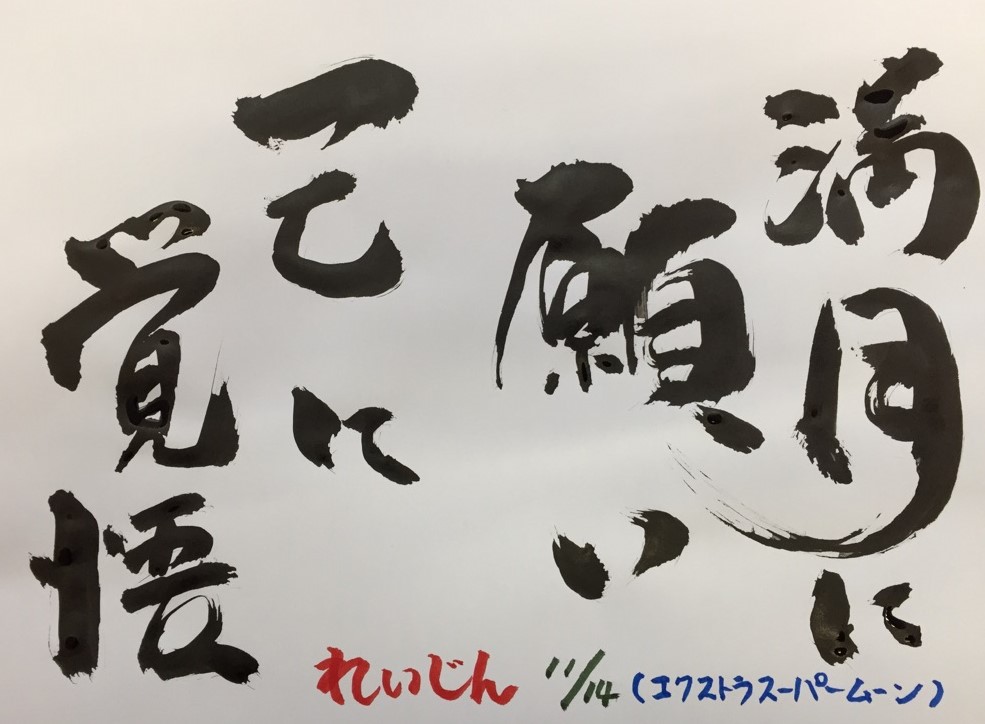 満月に
願い
己に
覚悟
れいじん 11/14 (エクストラスーパームーン)